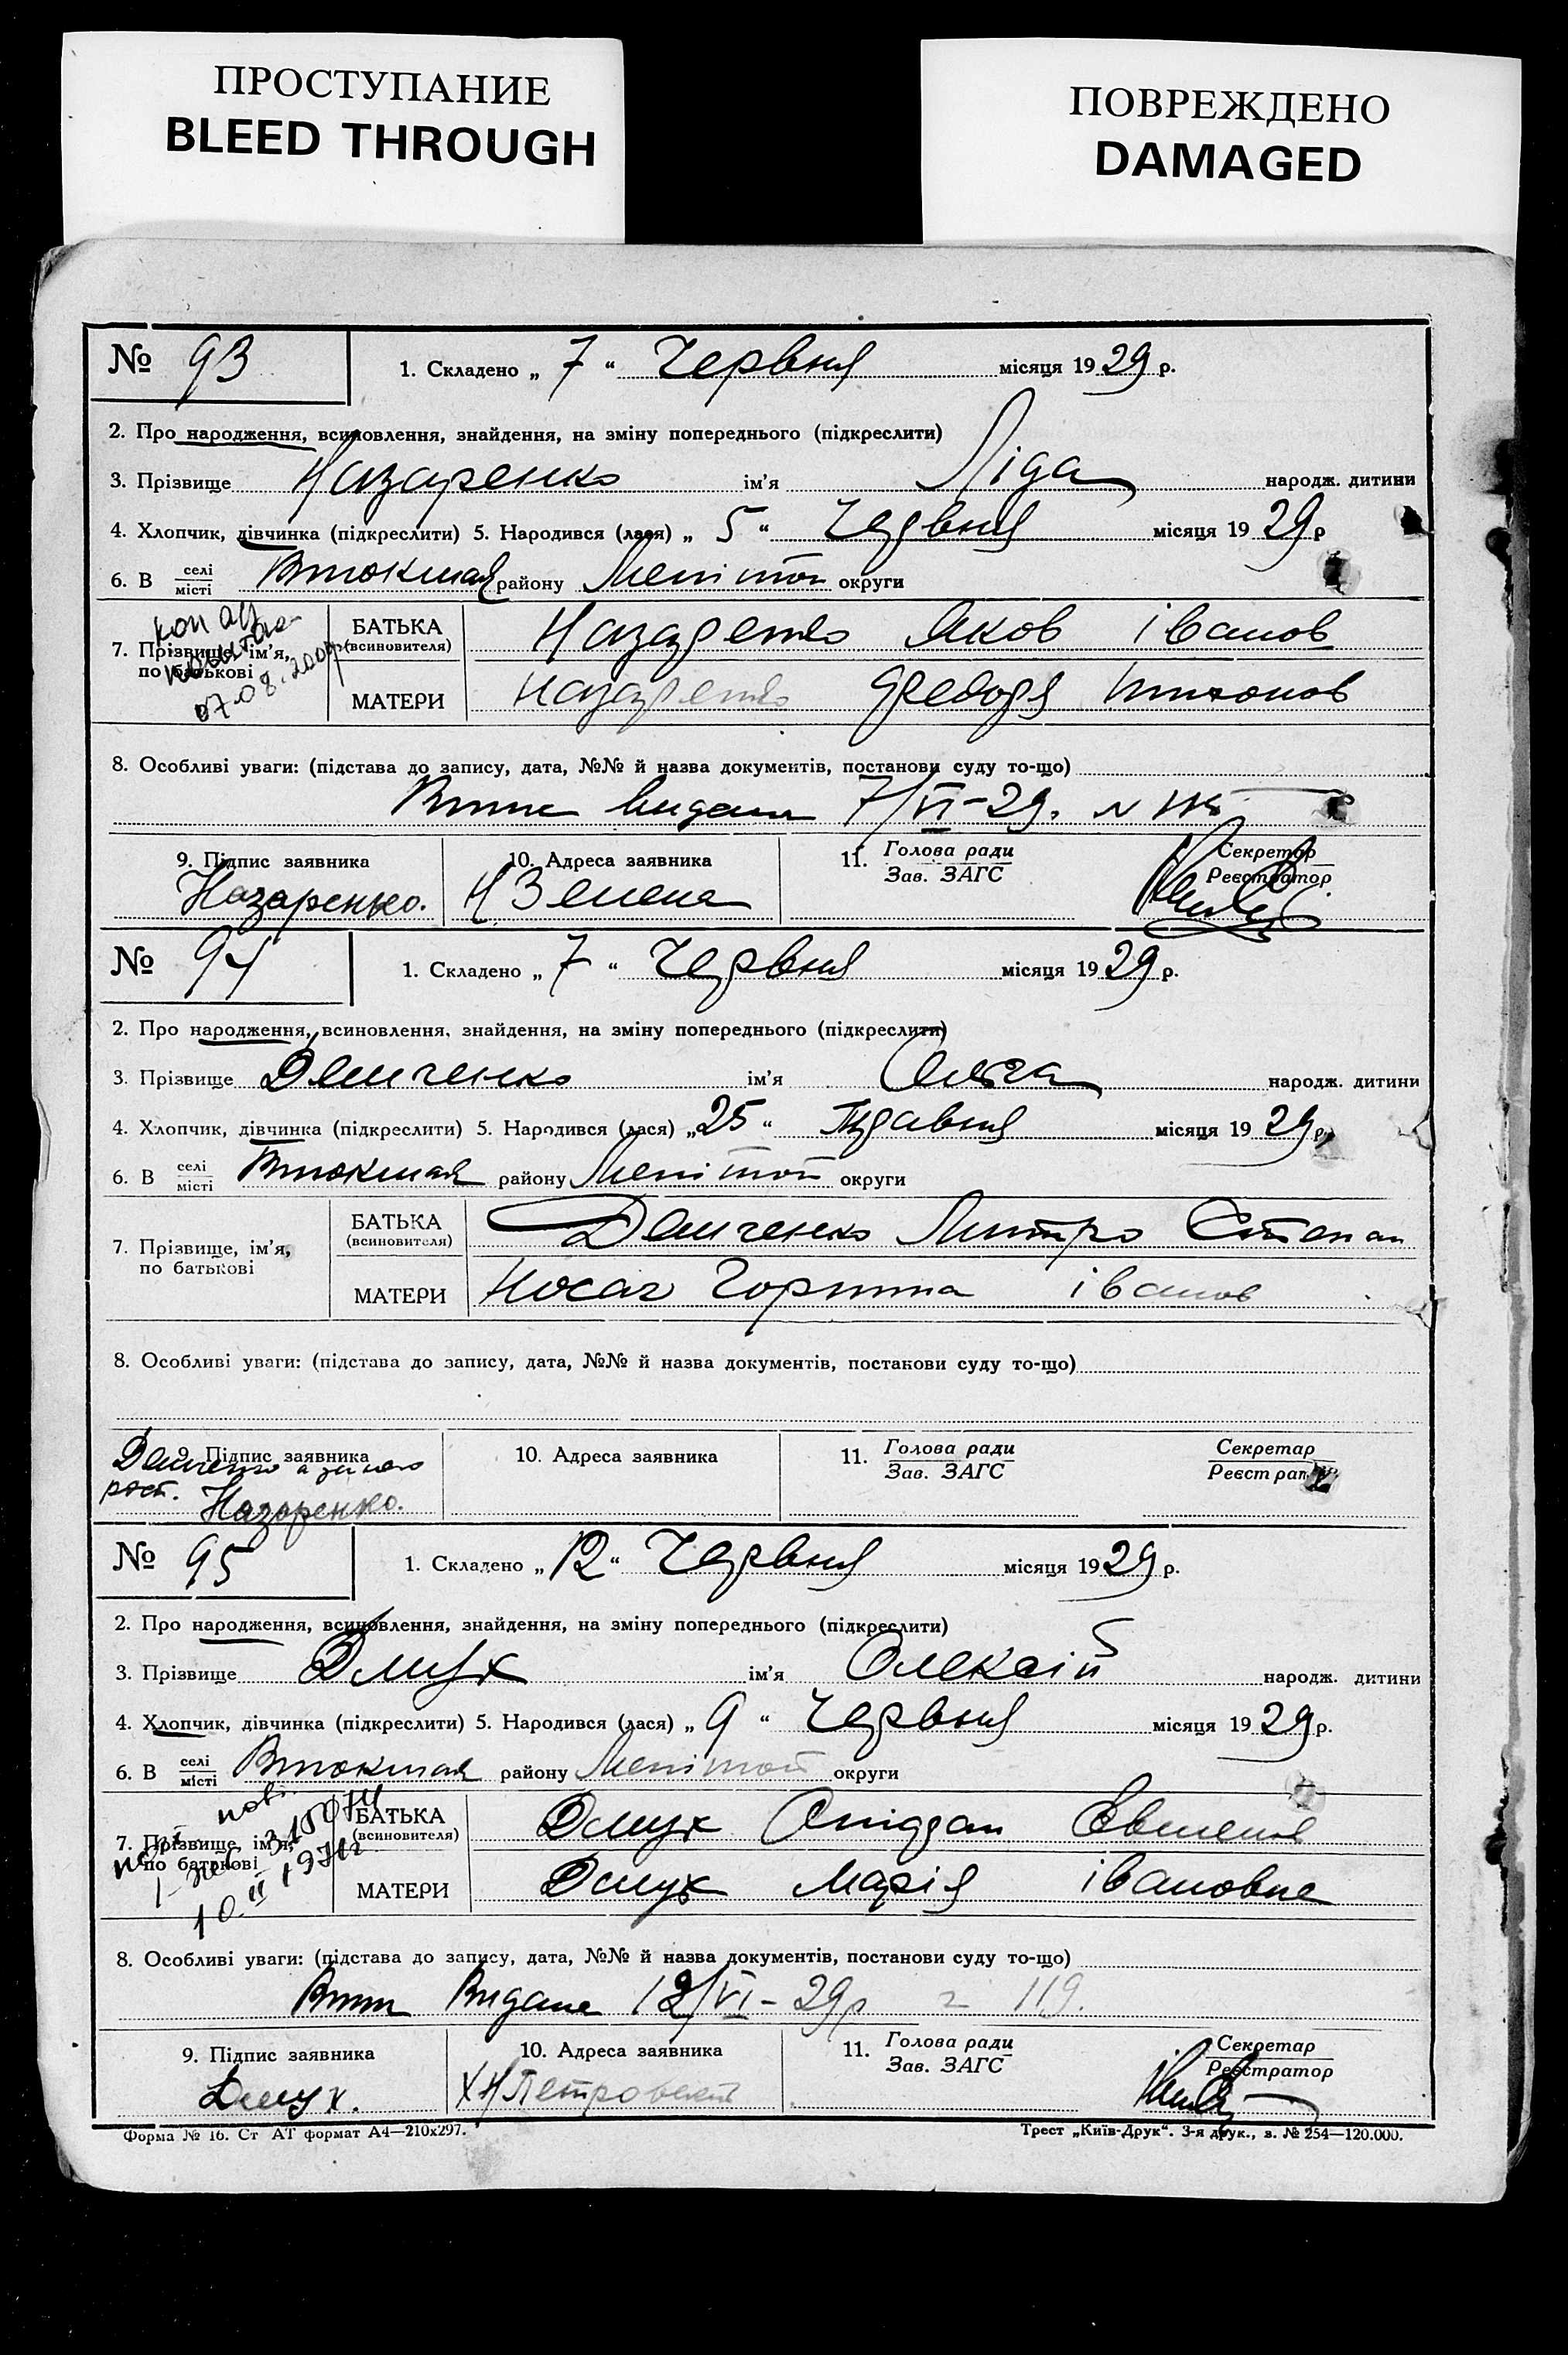 ПРОСТУПАНИЕ
BLEED THROUGH
ПОВРЕЖДЕНО
DAMAGED
№ 93
1. Складено „ 7 “ Червня місяця 1929 р.
2. Про народження, всиновлення, знайдення, на зміну попереднього (підкреслити)
3. Прізвище Назаренко ім'я Ліда народж. дитини
4. Хлопчик, дівчинка (підкреслити) 5. Народився (лася) „ 5 “ Червня місяця 1929 р
6. В селі місті району округи
7. Прізвище, ім'я, по батькові
07.08.200
БАТЬКА (всиновителя) Назаренко Яков Іванов
МАТЕРИ Назаренко
8. Особливі уваги: (підстава до запису, дата, №№ й назва документів, постанови суду то-що)
видана 7/VI-29.
9. Підпис заявника
10. Адреса заявника
11. Голова ради Зав. ЗАГС
Секретар Реєстратор
Назаренко.
№ 94
1. Складено „ 7 “ Червня місяця 1929 р.
2. Про народження, всиновлення, знайдення, на зміну попереднього (підкреслити)
3. Прізвище Демченко ім'я Ольга народж. дитини
4. Хлопчик, дівчинка (підкреслити) 5. Народився (лася) „25 “ Травня місяця 1929 р
6. В селі місті району округи
7. Прізвище, ім'я, по батькові
БАТЬКА (всиновителя) Демченко Степан
МАТЕРИ Носач Горпина Іванов
8. Особливі уваги: (підстава до запису, дата, №№ й назва документів, постанови суду то-що)
9. Підпис заявника
10. Адреса заявника
11. Голова ради Зав. ЗАГС
Секретар Реєстратор
Назаренко.
№ 95
1. Складено „ 12 “ Червня місяця 1929 р.
2. Про народження, всиновлення, знайдення, на зміну попереднього (підкреслити)
3. Прізвище Дмух ім'я Олексій народж. дитини
4. Хлопчик, дівчинка (підкреслити) 5. Народився (лася) „ 9 “ Червня місяця 1929 р.
6. В селі місті району округи
7. Прізвище, ім'я, по батькові
БАТЬКА (всиновителя) Дмух
МАТЕРИ Дмух Марія Івановна
8. Особливі уваги: (підстава до запису, дата, №№ й назва документів, постанови суду то-що)
Видана 12/VI-29р 119.
9. Підпис заявника
10. Адреса заявника
11. Голова ради Зав. ЗАГС
Секретар Реєстратор
Дмух.
Форма № 16. Ст АТ формат А4—210х297.
Трест „Київ-Друк“. 3-я друк., з. № 254—120.000.